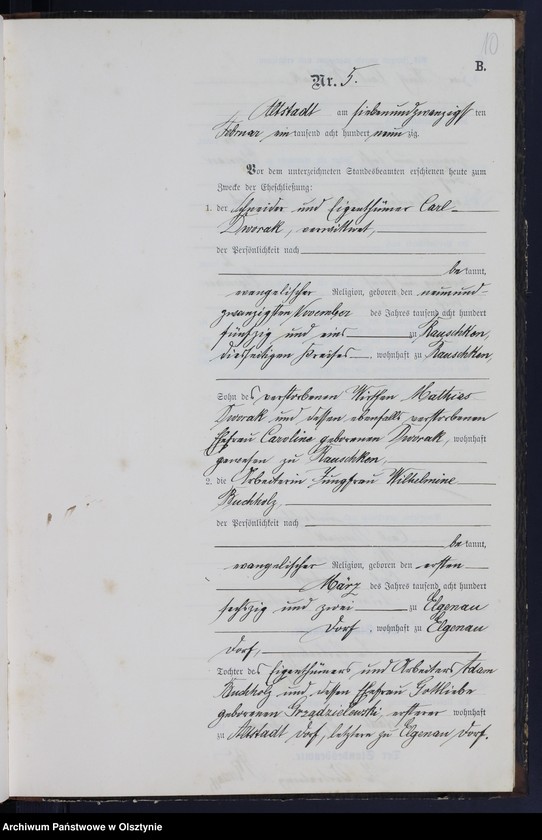 10
B.
Nr. 5.
Altstadt am siebenundzwanzigsten
Februar ein tausend acht hundert neunzig.
Vor dem unterzeichneten Standesbeamten erschienen heute zum
Zwecke der Eheschließung:
1. der Schneider und Eigenthümer Carl
Dworak, verwittwet,
der Persönlichkeit nach
bekannt,
evangelischer Religion, geboren den neunund-
zwanzigsten November des Jahres tausend acht hundert
fünfzig und eins zu Rauschken,
diesseitigen Kreises, wohnhaft zu Rauschken,
Sohn des verstorbenen Wirthen Mathies
Dworak und dessen ebenfalls verstorbenen
Ehefrau Caroline geborenen Dworak, wohnhaft
gewesen zu Rauschken,
2. die Arbeiterin Jungfrau Wilhelmine
Buchholz,
der Persönlichkeit nach
bekannt,
evangelischer Religion, geboren den ersten
März des Jahres tausend acht hundert
sechszig und zwei zu Elgenau
Dorf, wohnhaft zu Elgenau
Dorf,
Tochter des Eigenthümers und Arbeiters Adam
Buchholz und dessen Ehefrau Gottliebe
geborenen Grzgdzielewski, ersterer wohnhaft
zu Altstadt Dorf, letztere zu Elgenau Dorf.
Archiwum Państwowe w Olsztynie